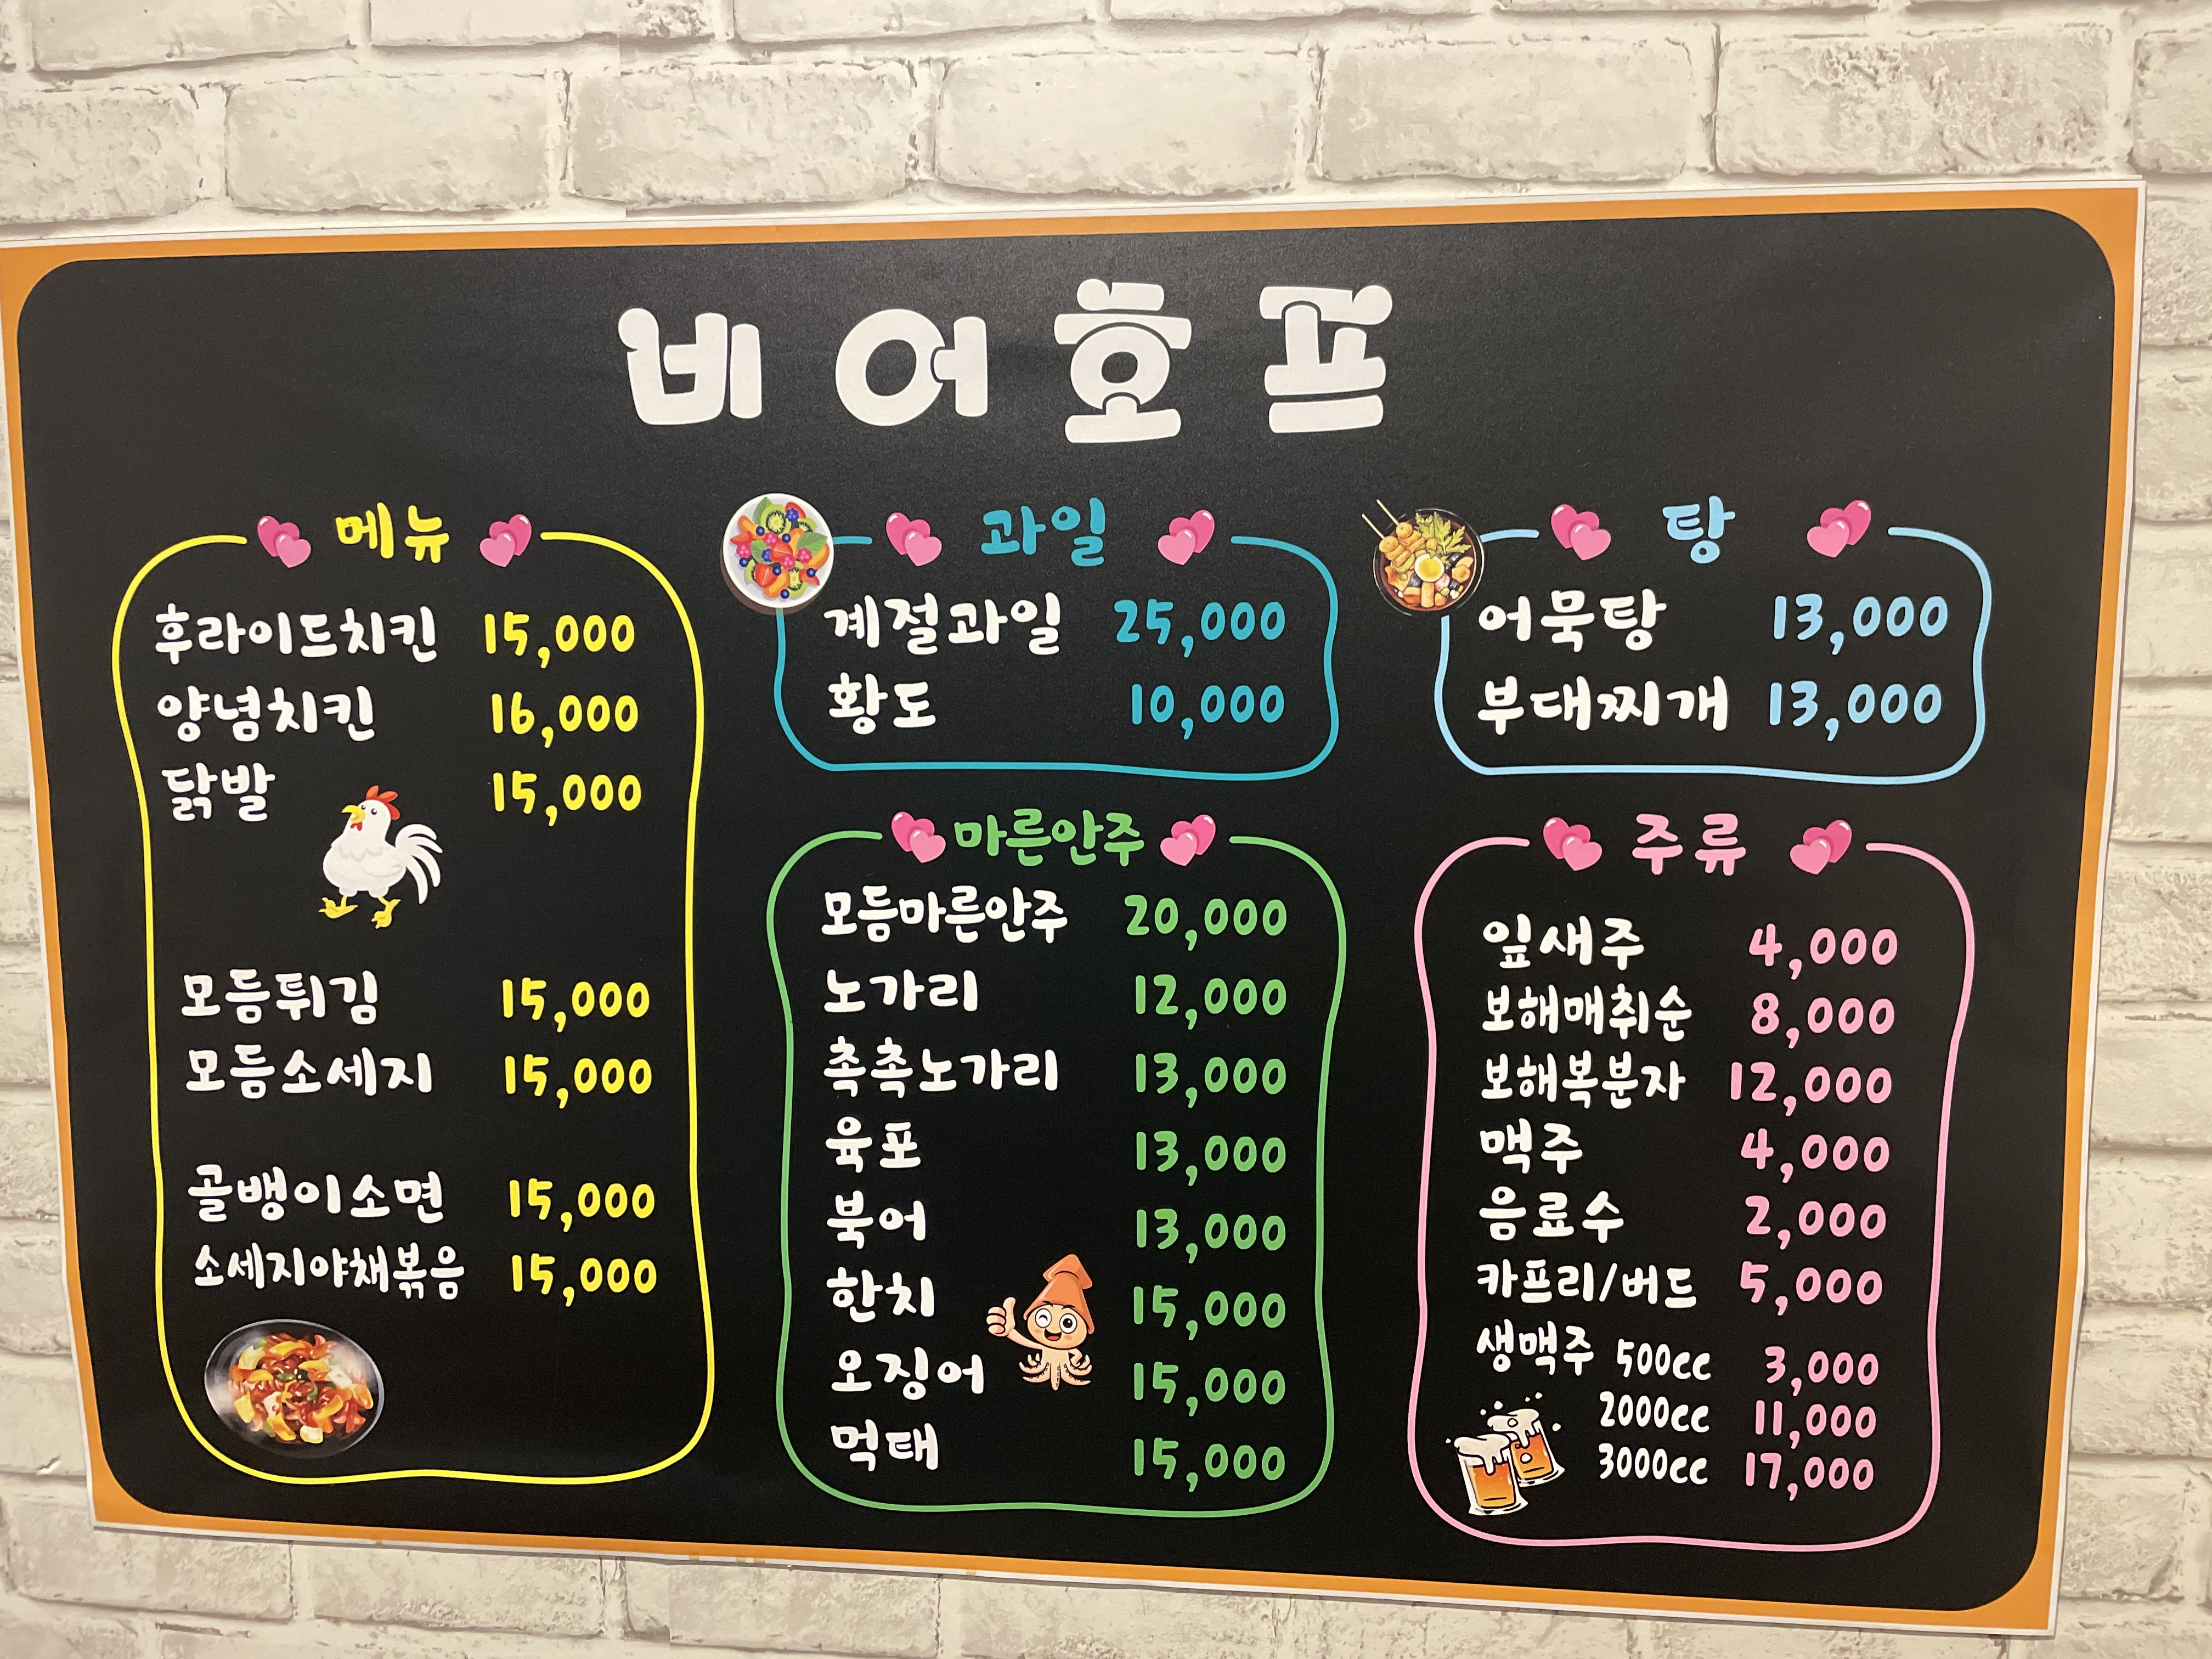 비어호프
메뉴
후라이드치킨 15,000
양념치킨 16,000
닭발 15,000
모듬튀김 15,000
모듬소세지 15,000
골뱅이소면 15,000
소세지야채볶음 15,000
과일
계절과일 25,000
황도 10,000
마른안주
모듬마른안주 20,000
노가리 12,000
촉촉노가리 13,000
육포 13,000
북어 13,000
한치 15,000
오징어 15,000
먹태 15,000
탕
어묵탕 13,000
부대찌개 13,000
주류
잎새주 4,000
보해매취순 8,000
보해복분자 12,000
맥주 4,000
음료수 2,000
카프리/버드 5,000
생맥주 500cc 3,000
2000cc 11,000
3000cc 17,000